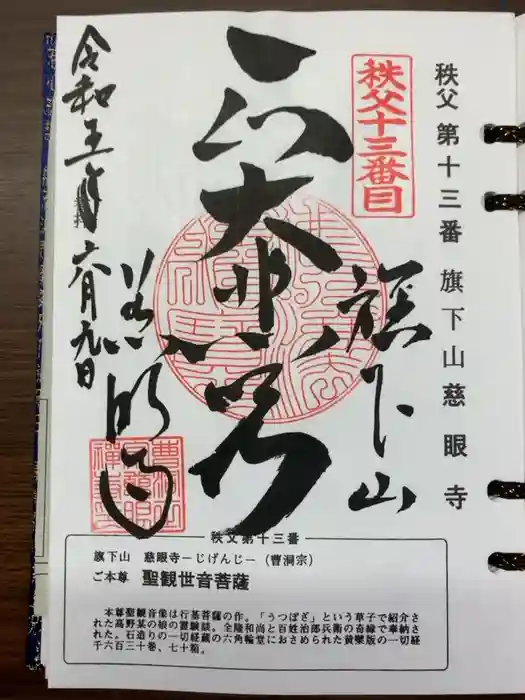 秩父 第十三番 旗下山慈眼寺
秩父十三番目
旗下山
大悲閣
令和五年六月九日
秩父第十三番
旗下山 慈眼寺－じげんじ－（曹洞宗）
ご本尊 聖観世音菩薩
本尊聖観音像は行基菩薩の作。「うつぼざ」という草子で紹介さ
れた高野某の娘の霊験談。全隆和尚と百姓治郎兵衛の奇縁で奉納さ
れた。石造りの一切経蔵の六角輪堂におさめられた黄檗版の一切経
千六百三十巻、七十箱。